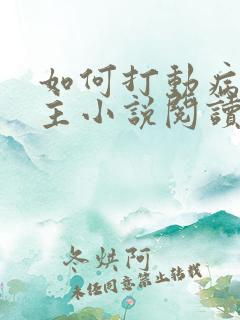 如何打動病
主小說閱讀
冬烘阿
未經同意禁止轉載